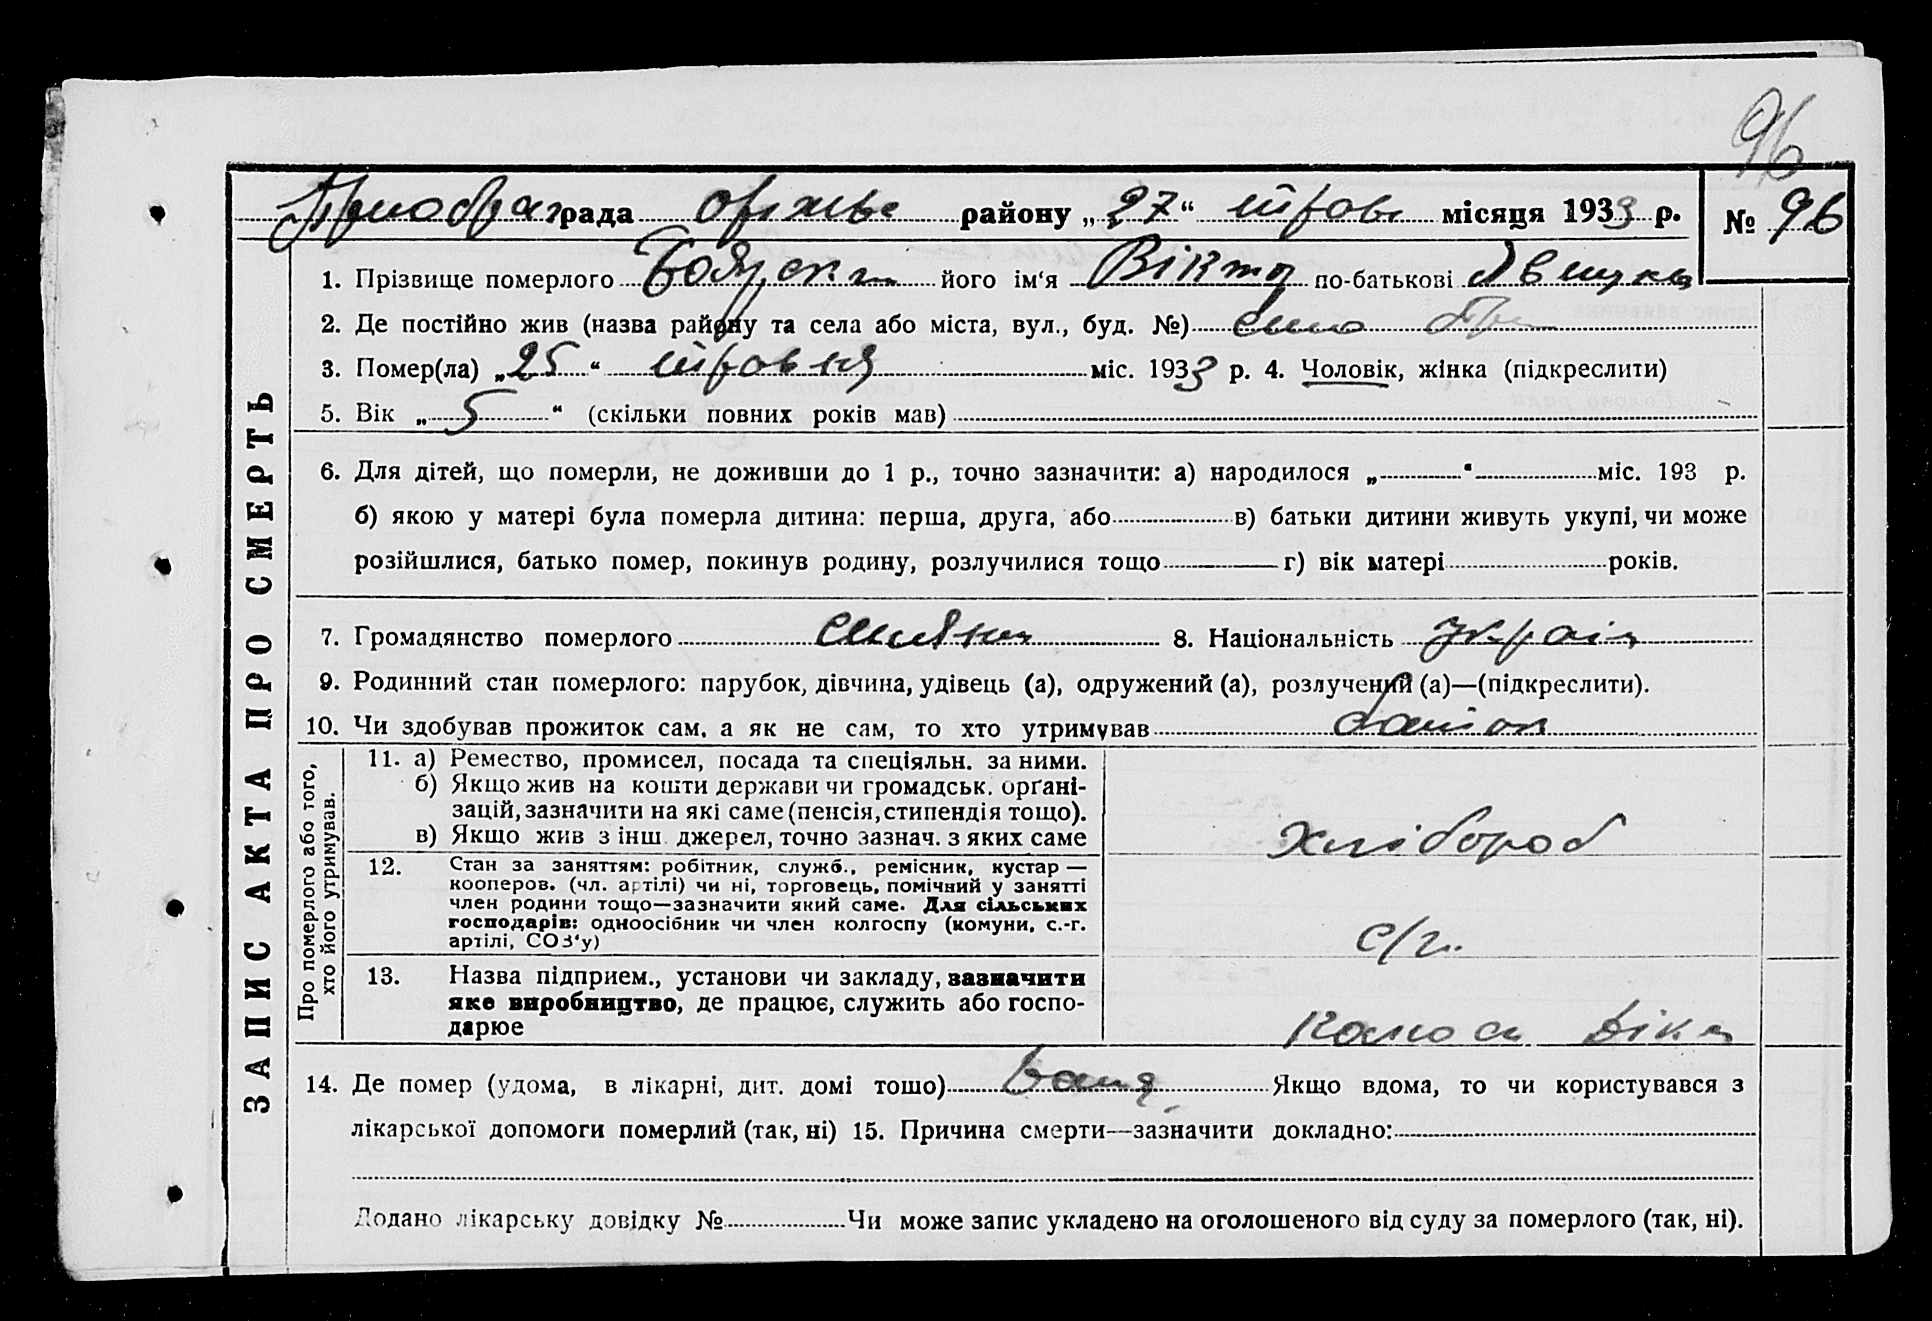 96
рада району „27“ місяця 1933 р. № 96
1. Прізвище померлого його ім‘я Віктор по-батькові
2. Де постійно жив (назва району та села або міста, вул., буд. №) село
3. Помер(ла) „25“ травня міс. 1933 р. 4. Чоловік, жінка (підкреслити)
5. Вік „5“ (скільки повних років мав)
6. Для дітей, що померли, не доживши до 1 р., точно зазначити: а) народилося „ “ міс. 193 р.
б) якою у матері була померла дитина: перша, друга, або в) батьки дитини живуть укупі, чи може
розійшлися, батько помер, покинув родину, розлучилися тощо г) вік матері років.
7. Громадянство померлого 8. Національність україн
9. Родинний стан померлого: парубок, дівчина, удівець (а), одружений (а), розлучений (а)—(підкреслити).
10. Чи здобував прожиток сам, а як не сам, то хто утримував
ЗАПИС АКТА ПРО СМЕРТЬ
Про померлого або того,
хто його утримував.
11. а) Ремество, промисел, посада та спеціяльн. за ними.
б) Якщо жив на кошти держави чи громадськ. органі-
зацій, зазначити на які саме (пенсія, стипендія тощо).
в) Якщо жив з інш. джерел, точно зазнач. з яких саме
хлібороб
12. Стан за заняттям: робітник, служб., ремісник, кустар —
кооперов. (чл. артілі) чи ні, торговець, помічний у занятті
член родини тощо—зазначити який саме. Для сільських
господарів: одноосібник чи член колгоспу (комуни, с.-г.
артілі, СОЗ‘у)
с/г.
13. Назва підприєм., установи чи закладу, зазначити
яке виробництво, де працює, служить або госпо-
дарює
14. Де помер (удома, в лікарні, дит. домі тошо) Якщо вдома, то чи користувався з
лікарської допомоги померлий (так, ні) 15. Причина смерти—зазначити докладно:
Додано лікарську довідку № Чи може запис укладено на оголошеного від суду за померлого (так, ні).